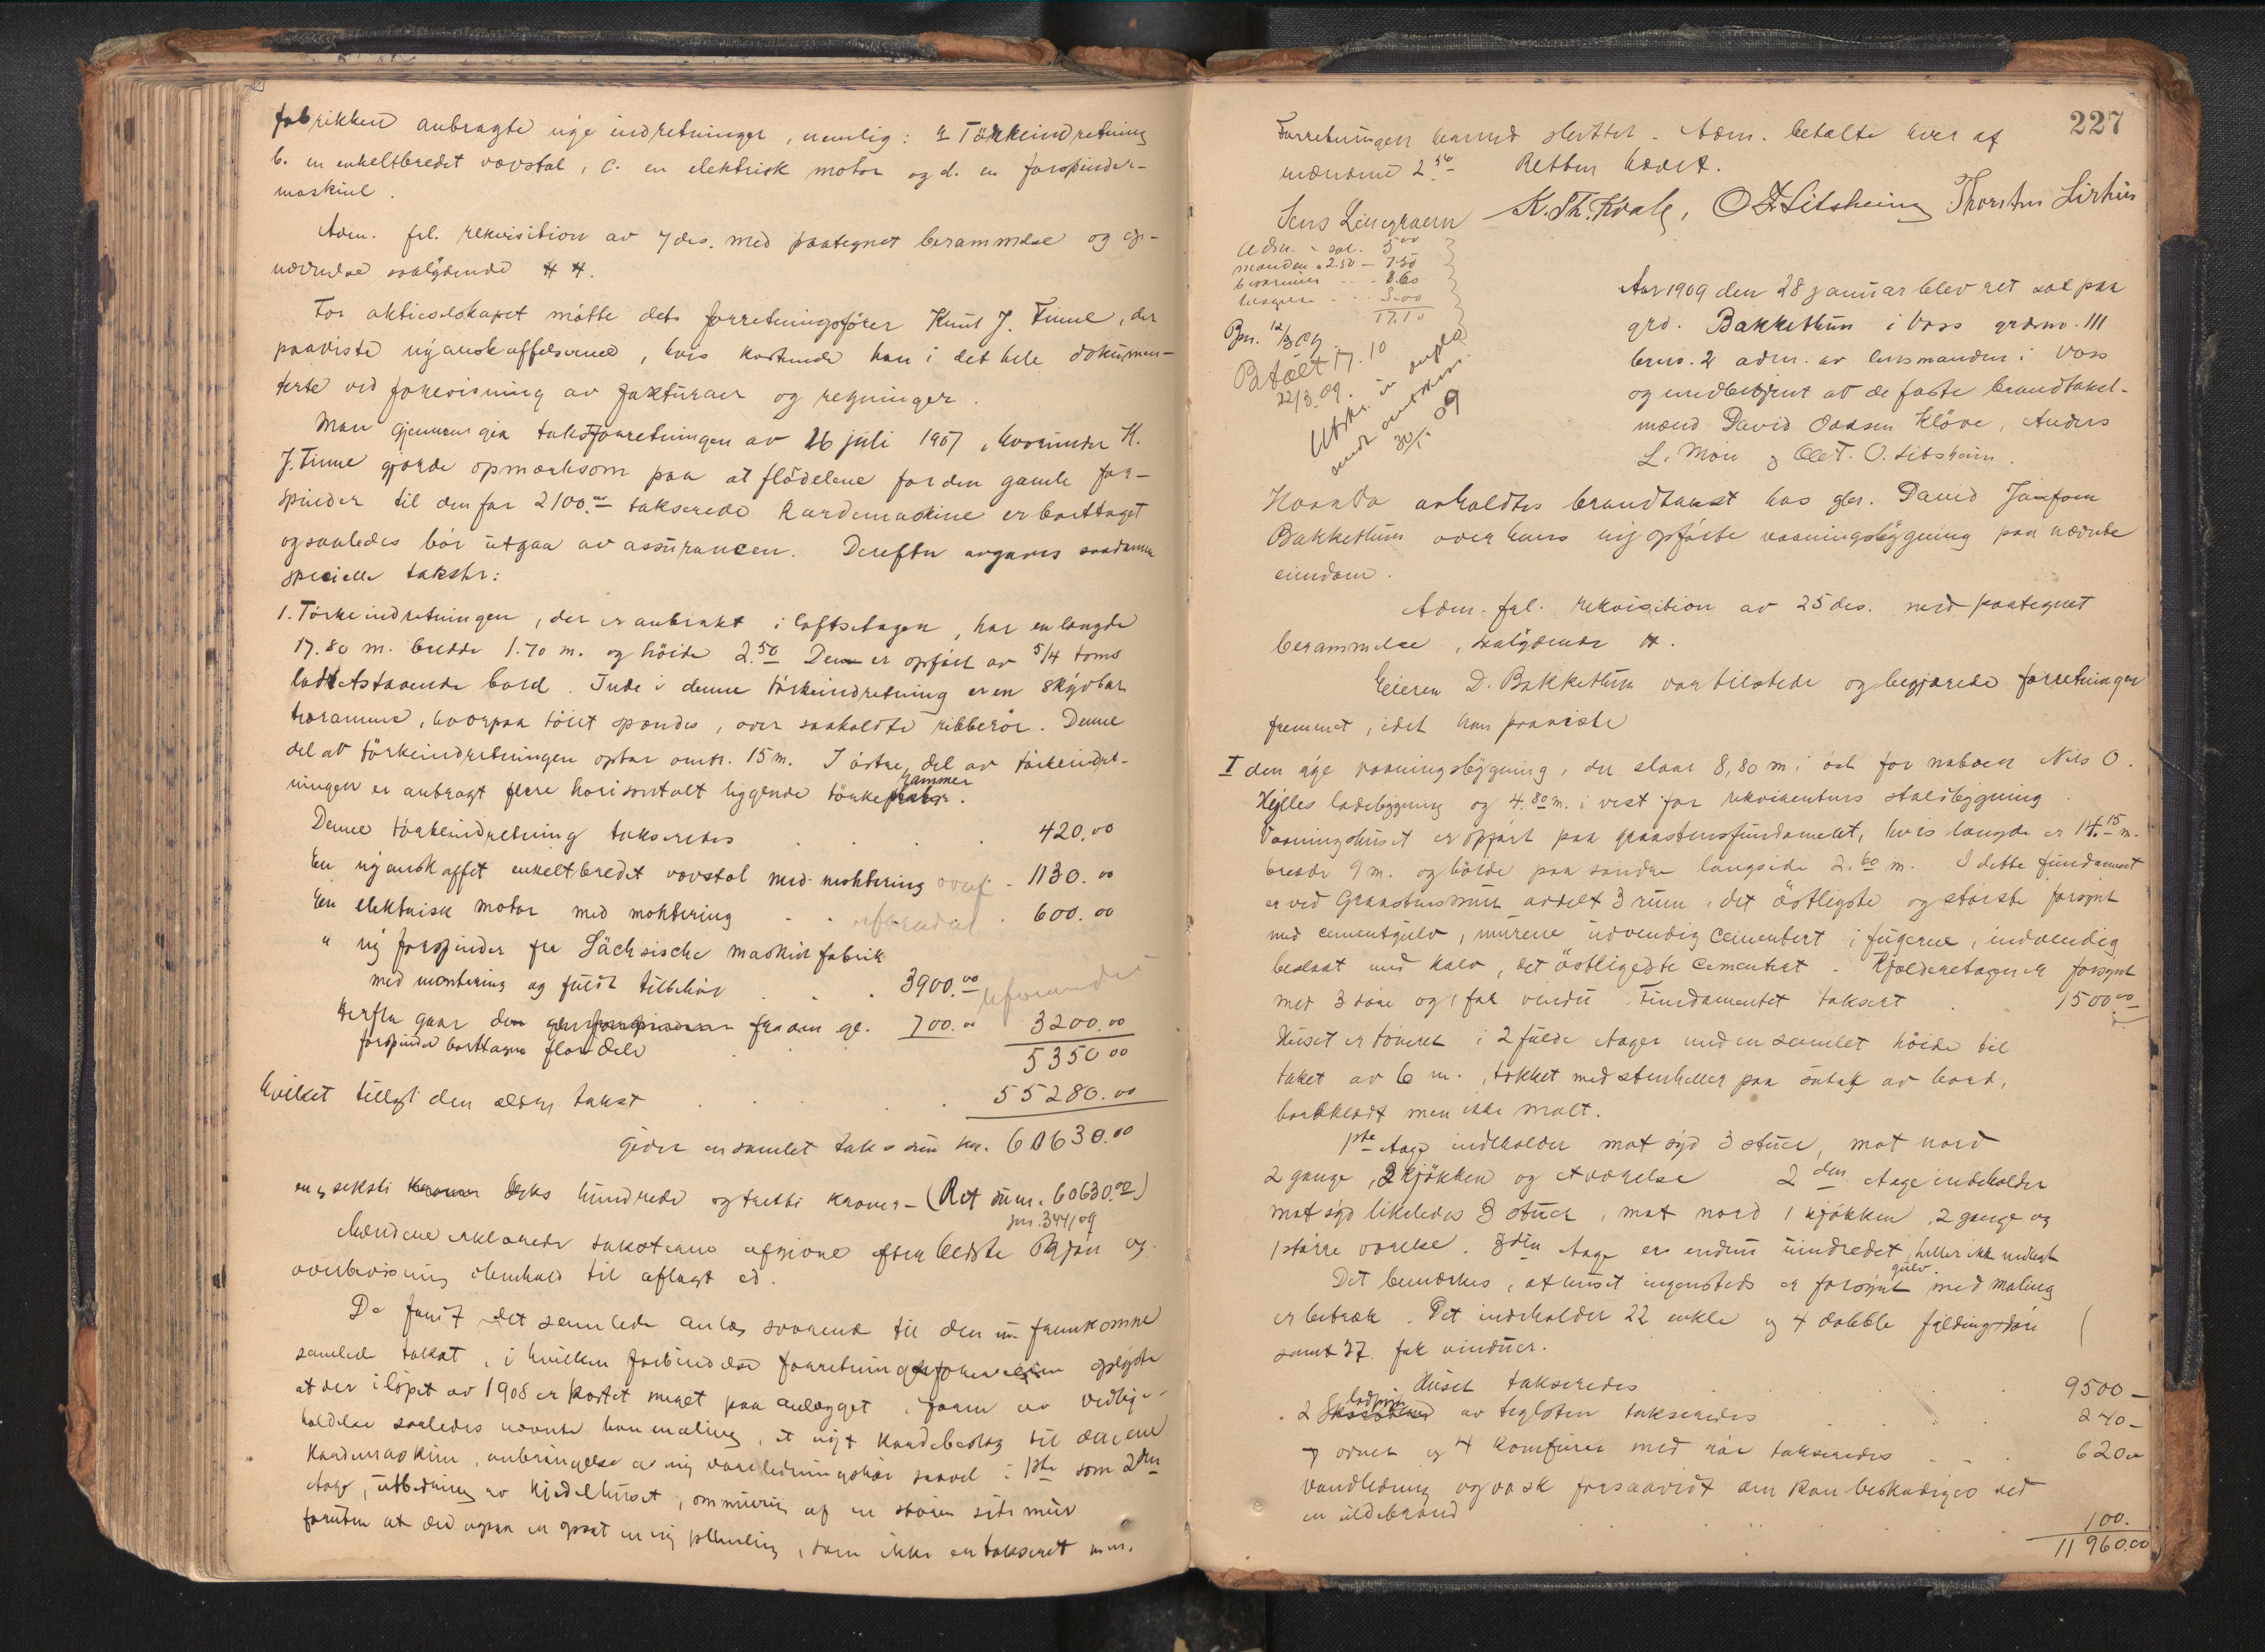 fabrikken anbragte nye indretninger, nemlig: a Törkeindretning
b. en enkeltbredet vævstol, c. en elektrisk motor og d. en forspinder-
maskine.
Adm. frl. rekvisition av 7 des. med paategnet berammelse og op-
nævnelse saalydende # #.
For aktieselskapet mötte dets forretningsförer Knut J. Finne, der
paaviste nyanskaffelserne, hvis kostende han i det hele dokumen-
terte ved forevisning av fakturaer og regninger.
Man gjennemgik takstforretningen av 16 juli 1907, hvorunder K.
J. Finne gjorde opmerksom paa at flödelene for den gamle for-
spinder til den for 2100.00 takserede kardemaskine er borttaget
og saaledes bör utgaa av assurancen. Derefter avgaves saadanne
specielle takster:
1. Törkeindretningen, der er anbrakt i loftsetagen, har en længde
17.80 m. bredde 1.70 m. og höide 2.50 Den er opfört av 5/4 toms
staaende bord. Inde i denne törkeindretning er en skyvbar
træramme, hvorpaa töiet spændes, over saakaldte ribberör. Denne
del av törkeindretningen optar omtr. 15 m. I östre del av törkeindret-
ningen er anbragt flere horisontalt liggende törke kammer.
Denne törkeindretning takseredes . . . . 420.00
En nyanskaffet enkeltbredet vævstol med montering - 1130.00
En elektrisk motor med montering . . . 600.00
" ny forspinder fra Sächsische maskin fabrik
med montering og fuldt tilbehör . . . 3900.00
Herfra gaar den fra den gl. 700.00 3200.00
forspinder borttagne flordele . . 5350.00
Hvilket tillagt den ældre takst . . . 55280.00
Giver en samlet taksum kr. 60630.00
seksti seks hundrede og tretti kroner - (Ret sum. 60630.00)
jnr. 344/09
Mændene erklærede taksterne afgivne efter bedste skjön og
overbevisning i henhold til aflagt ed.
De fandt det samlede anlæg svarende til den nu fremkomne
samlede takst, i hvilken forbindelse forretningsföreren oplyste
at der i löpet av 1908 er kostet meget paa anlægget i form av vedlige-
holdelse saaledes nævnte han maling, et nyt kardebeslag til den ene
kardemaskine, anbringelse av ny varmledningsrör saavel i 1ste som 2den
etage, utbedring av kjedelhuset, ommuring af en större side mur
foruten at der ogsaa er opsat en ny , som ikke er takseret m.m.
227
Forretningen hermed sluttet. Adm. betalte hver af
mændene 2.50 Retten hævet.
Jens Lindgraven K. Th. Kvale, O T Litsheim Thorsten Lirhus
Adm. - sal. 5.00
mænden a 2.50 - 7.50
1.60
3.00
17.10
Jnr. 12/3 09.
Betalt 17.10
22/3.09.
Utskr. in duplo
sendt amtskon.
30/1. 09
Aar 1909 den 28 januar blev ret sat paa
grd. Bakkethun i Voss grdsnr. 111
brnr. 2 adm. av lensmanden i Voss
og medbetjent av de faste brandtakst-
mænd David Oddsen Klöve, Anders
L. Möen og Ole T. O. Litsheim.
Hvorda avholdtes brandtakst hos gbr. David Josefson
Bakkethun over hans nyopförte vaaningsbygning paa nævnte
eiendom.
Adm. frl. rekvisition av 25 des. med paategnet
berammelse, saalydende #.
Eieren D. Bakkethun var tilstede og begjærede forretningen
fremmet, idet han paaviste
I den nye vaaningsbygning, der staar 8,80 m i öst for naboen Nils O.
Hylles ladebygning og 4.80 m. i vest for rekvirentens staldbygning.
Vaaningshuset er opfört paa graastensfundament, hvis længde er 14.15 m.
bredde 9 m. og höide paa söndre langside 2.60 m. I dette fundament
er ved Graastensmur avdelt 3 rum, det östligste og störste forsynt
med cementgulv, murene udvendig cementert i fugerne, indvendig
beslaat med kalk, det östligste cementert. Kjelderetagen er forsynt
med 3 döre og 1 fak vindu. Fundamentet taksert . 1500.00
Huset er tömret i 2 fulde etager med en samlet höide til
taket av 6 m., tækket med stenheller paa undtak av bord,
bordklædt men ikke malt.
1ste etage indeholder mot syd 3 stuer, mot nord
2 gange, 2 kjökken og et værelse 2den etage indeholder
mot syd likeledes 3 stuer, mot nord 1 kjökken, 2 gange og
1 större værelse. 3die etage er endnu uindredet, heller ikke nedlagt
gulv
Det bemærkes, at huset ingensteds er forsynt med maling
er betræk. Det indeholder 22 enkle og 4 dobble fyldingsdöre
samt 27 fak vinduer.
Huset takseredes . . . . 9500 -
2 av teglsten takseredes . . . 240 -
7 ovner og 4 komfurer med rör takseredes . . . 620.00
Vandledning og vask forsaavidt den kan beskadiges ved
en ildebrand . . . . 100.
11960.00